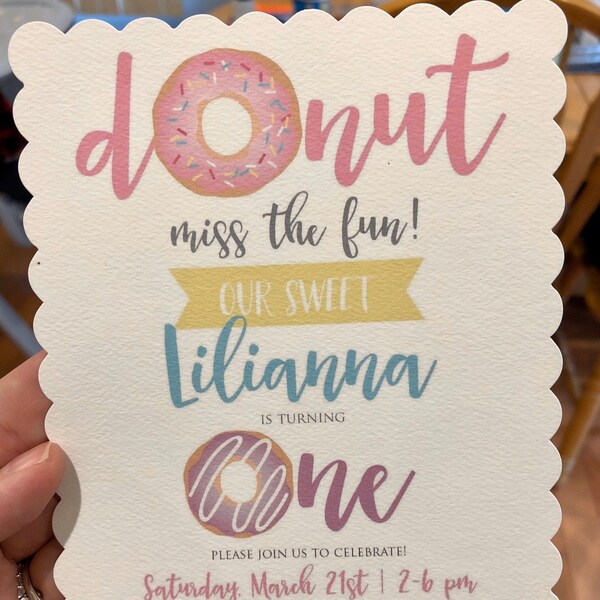 donut
miss the fun!
OUR SWEET
Lilianna
IS TURNING
One
PLEASE JOIN US TO CELEBRATE!
Saturday, March 21st | 2-6 pm